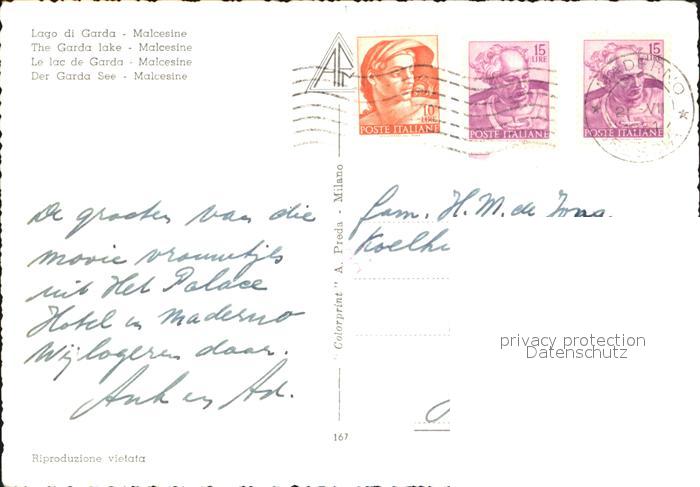 Lago di Garda - Malcesine
The Garda lake - Malcesine
Le lac de Garda - Malcesine
Der Garda See - Malcesine
10 LIRE
POSTE ITALIANE
15 LIRE
POSTE ITALIANE
15
POSTE ITALIANE
De groeten van die
mooie vrouwtjes
uit Het Palace
Hotel in Maderno
Wij logeren daar.
Ank en Ad.
Fam. H. M. de
"Colorprint" A. Preda - Milano
privacy protection
Datenschutz
167
Riproduzione vietata